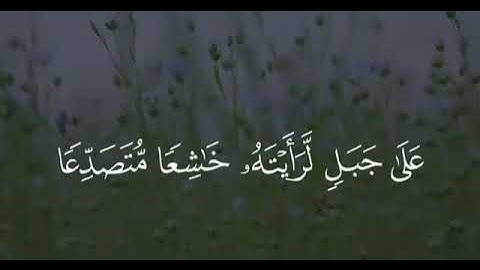 عَلَىٰ جَبَلٍ لَّرَأَيْتَهُۥ خَٰشِعًا مُّتَصَدِّعًا